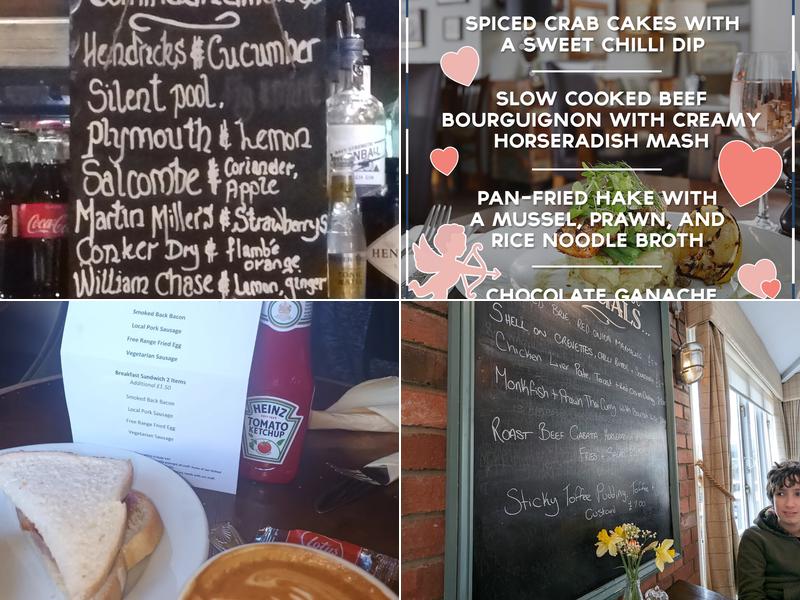 Hendricks & Cucumber
Silent pool.
Plymouth & Lemon
Salcombe & Coriander,
Apple
Martin Miller's & Strawberrys
Conker Dry & flambé
orange
William Chase & Lemon, ginger
Coca-Cola
HEN
SPICED CRAB CAKES WITH
A SWEET CHILLI DIP
SLOW COOKED BEEF
BOURGUIGNON WITH CREAMY
HORSERADISH MASH
PAN-FRIED HAKE WITH
A MUSSEL, PRAWN, AND
RICE NOODLE BROTH
CHOCOLATE GANACHE
Smoked Back Bacon
Local Pork Sausage
Free Range Fried Egg
Vegetarian Sausage
Breakfast Sandwich 2 Items
Additional £1.50
Smoked Back Bacon
Local Pork Sausage
Free Range Fried Egg
Vegetarian Sausage
HEINZ
TOMATO
KETCHUP
Lotus
Shell on Crevettes, Chilli
Chicken Liver Pate, Toast
Monkfish + Prawn Thai Curry with
Roast Beef
Fries +
Sticky Toffee Pudding, Toffee +
Custard £7.00